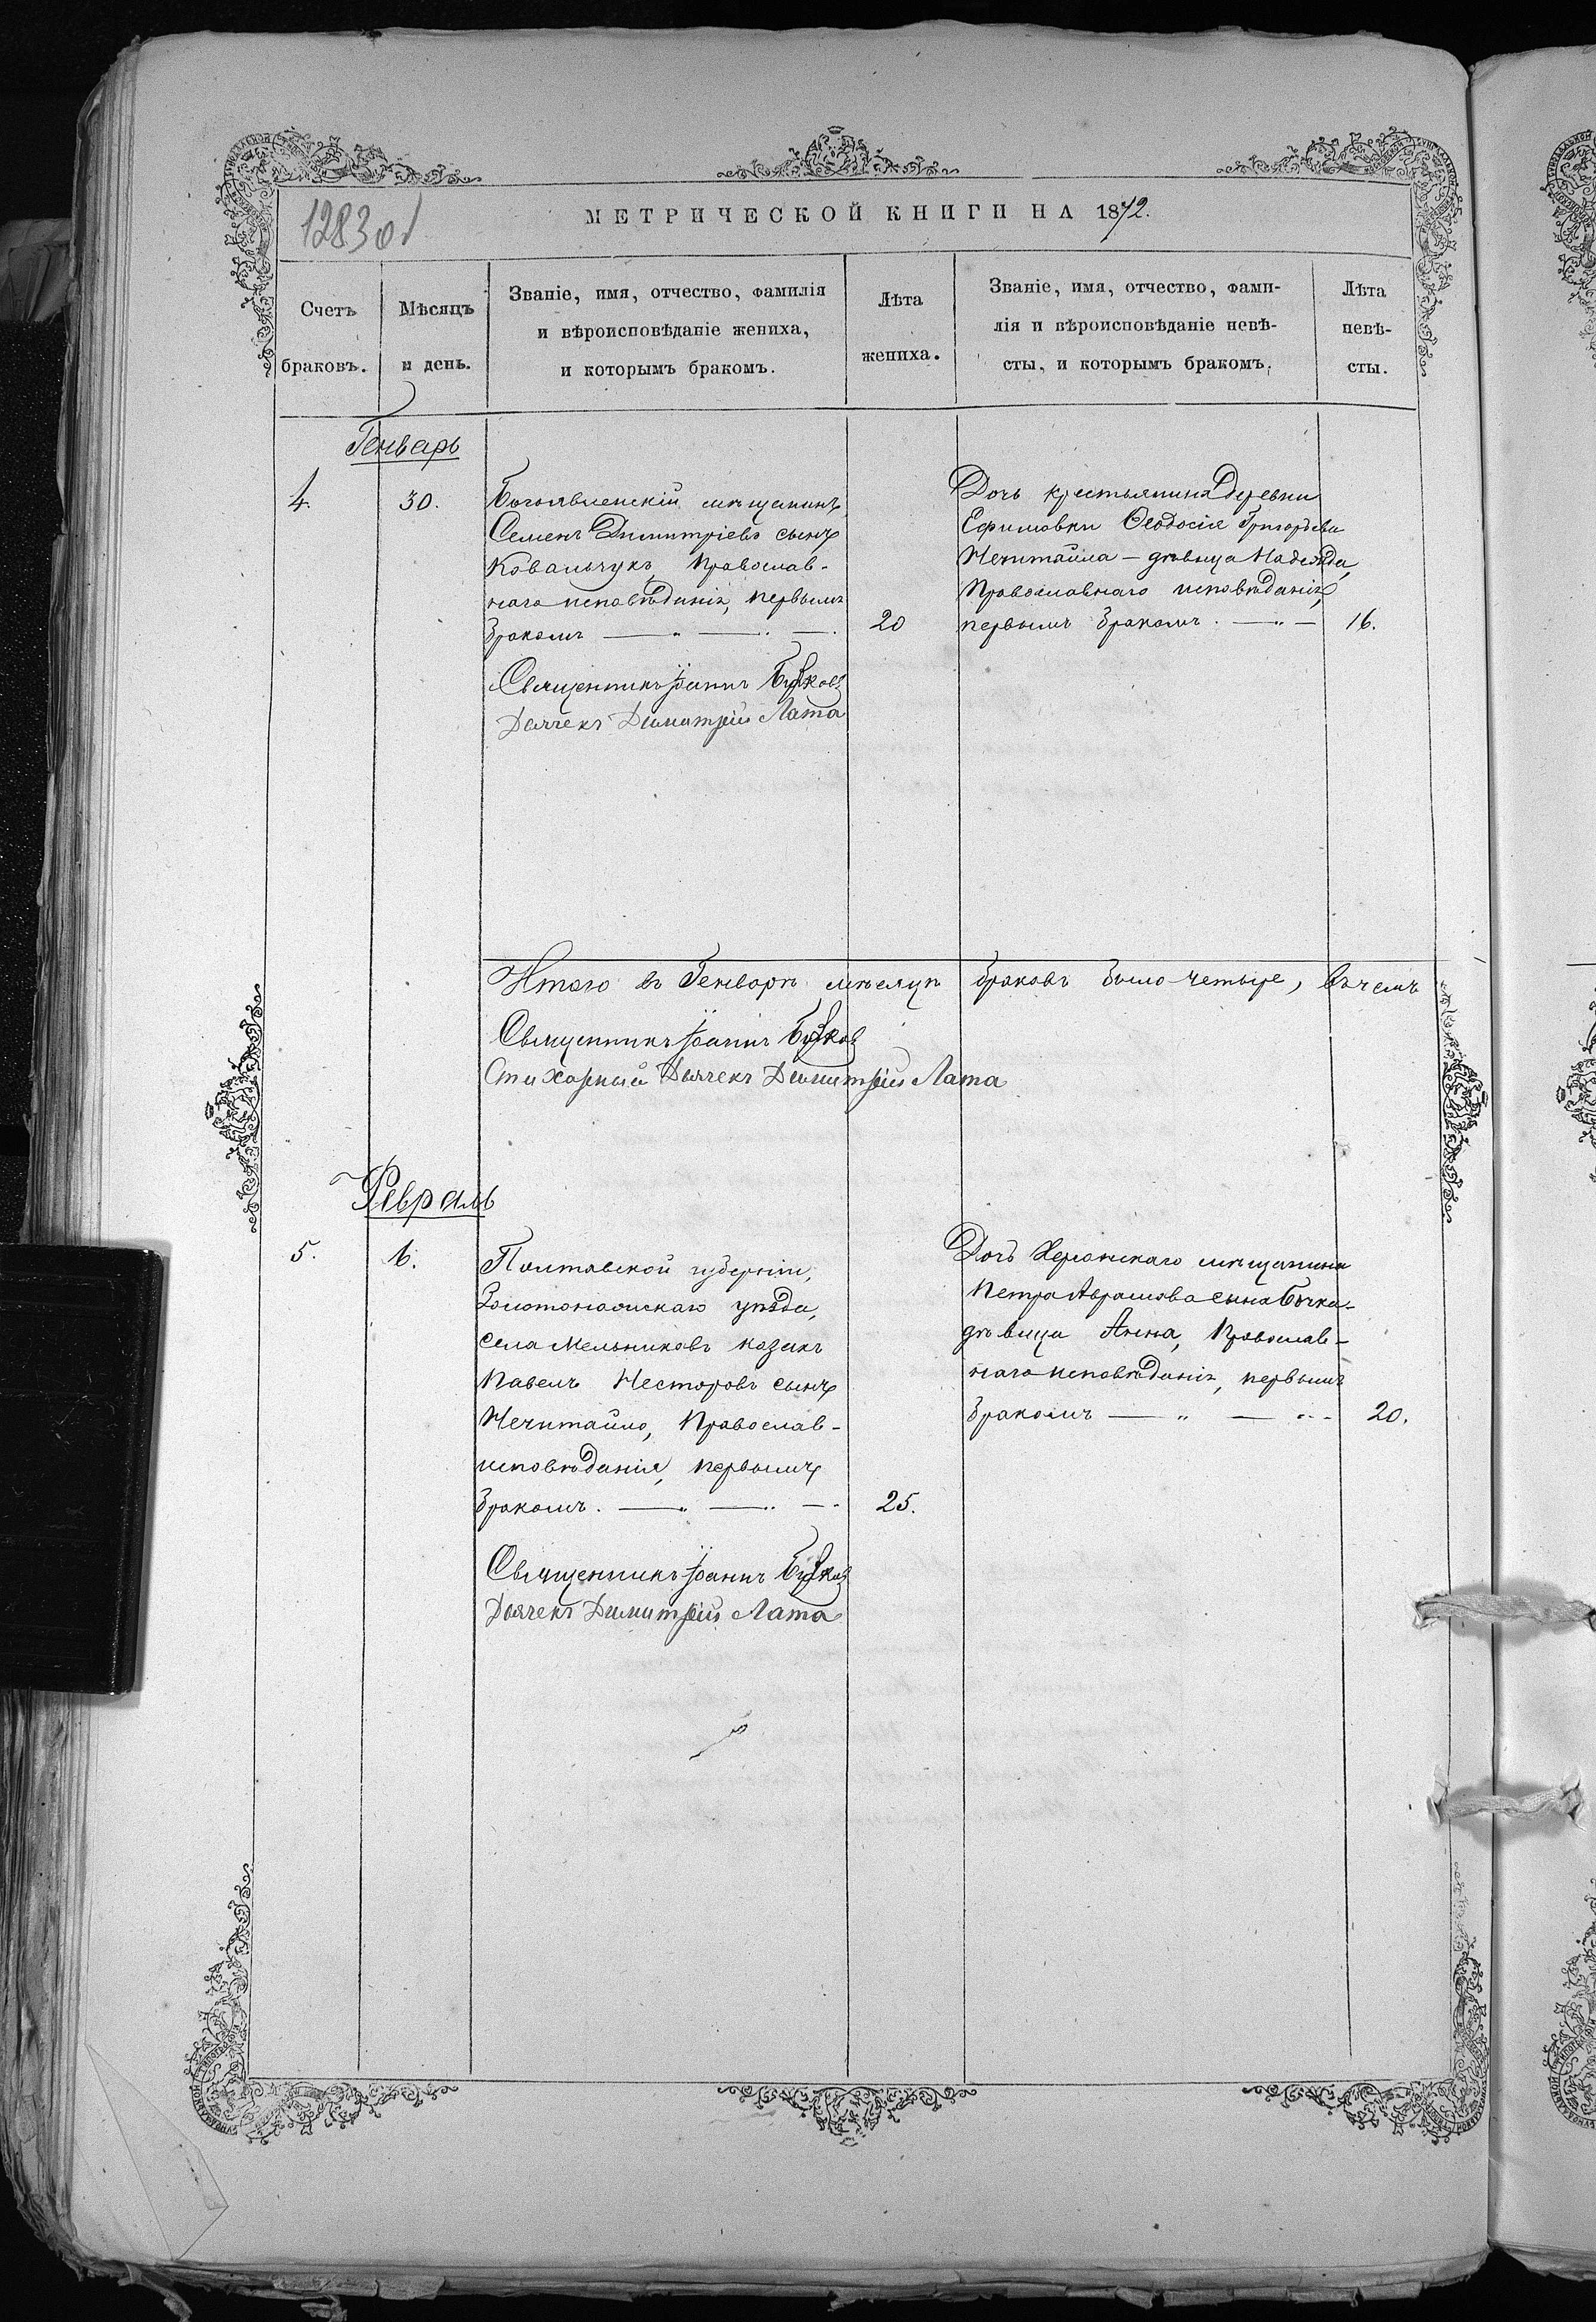 1283 об
МЕТРИЧЕСКОЙ КНИГИ НА 1872.
Счетъ браковъ.
Мѣсяцъ и день.
Званіе, имя, отчество, фамилія
и вѣроисповѣданіе жениха,
и которымъ бракомъ.
Лѣта жениха.
Званіе, имя, отчество, фами-
лія и вѣроисповѣданіе невѣ-
сты, и которымъ бракомъ.
Лѣта невѣ-
сты.
Генварь
4.
30.
Богоявленскій мѣщанинъ
Семенъ Димитріевъ сынъ
Ковальчукъ, Православ-
наго исповѣданія, первымъ
бракомъ
20
Дочь крестьянина деревни
Ефимовки Ѳеодосія Григорьева
Нечитайла - дѣвица Надежда,
Православнаго исповѣданія,
первымъ бракомъ.
16.
Священникъ Іоаннъ
Дьячекъ Димитрій Лата
Итого въ Генварѣ мѣсяцѣ браковъ было четыре, въ чемъ
Священникъ Іоаннъ
Стихарный Дьячекъ Димитрій Лата
Февраль
5.
6.
Полтавской губерніи,
Золотоношскаго уѣзда,
села Мельниковъ козакъ
Павелъ Несторовъ сынъ
Нечитайло, Православ-
исповѣданія, первымъ
бракомъ.
25.
Дочь Херсонскаго мѣщанина
Петра Аврамова сына Бычка-
дѣвица Анна, Православ-
наго исповѣданія, первымъ
бракомъ
20.
Священникъ Іоаннъ
Дьячекъ Димитрій Лата